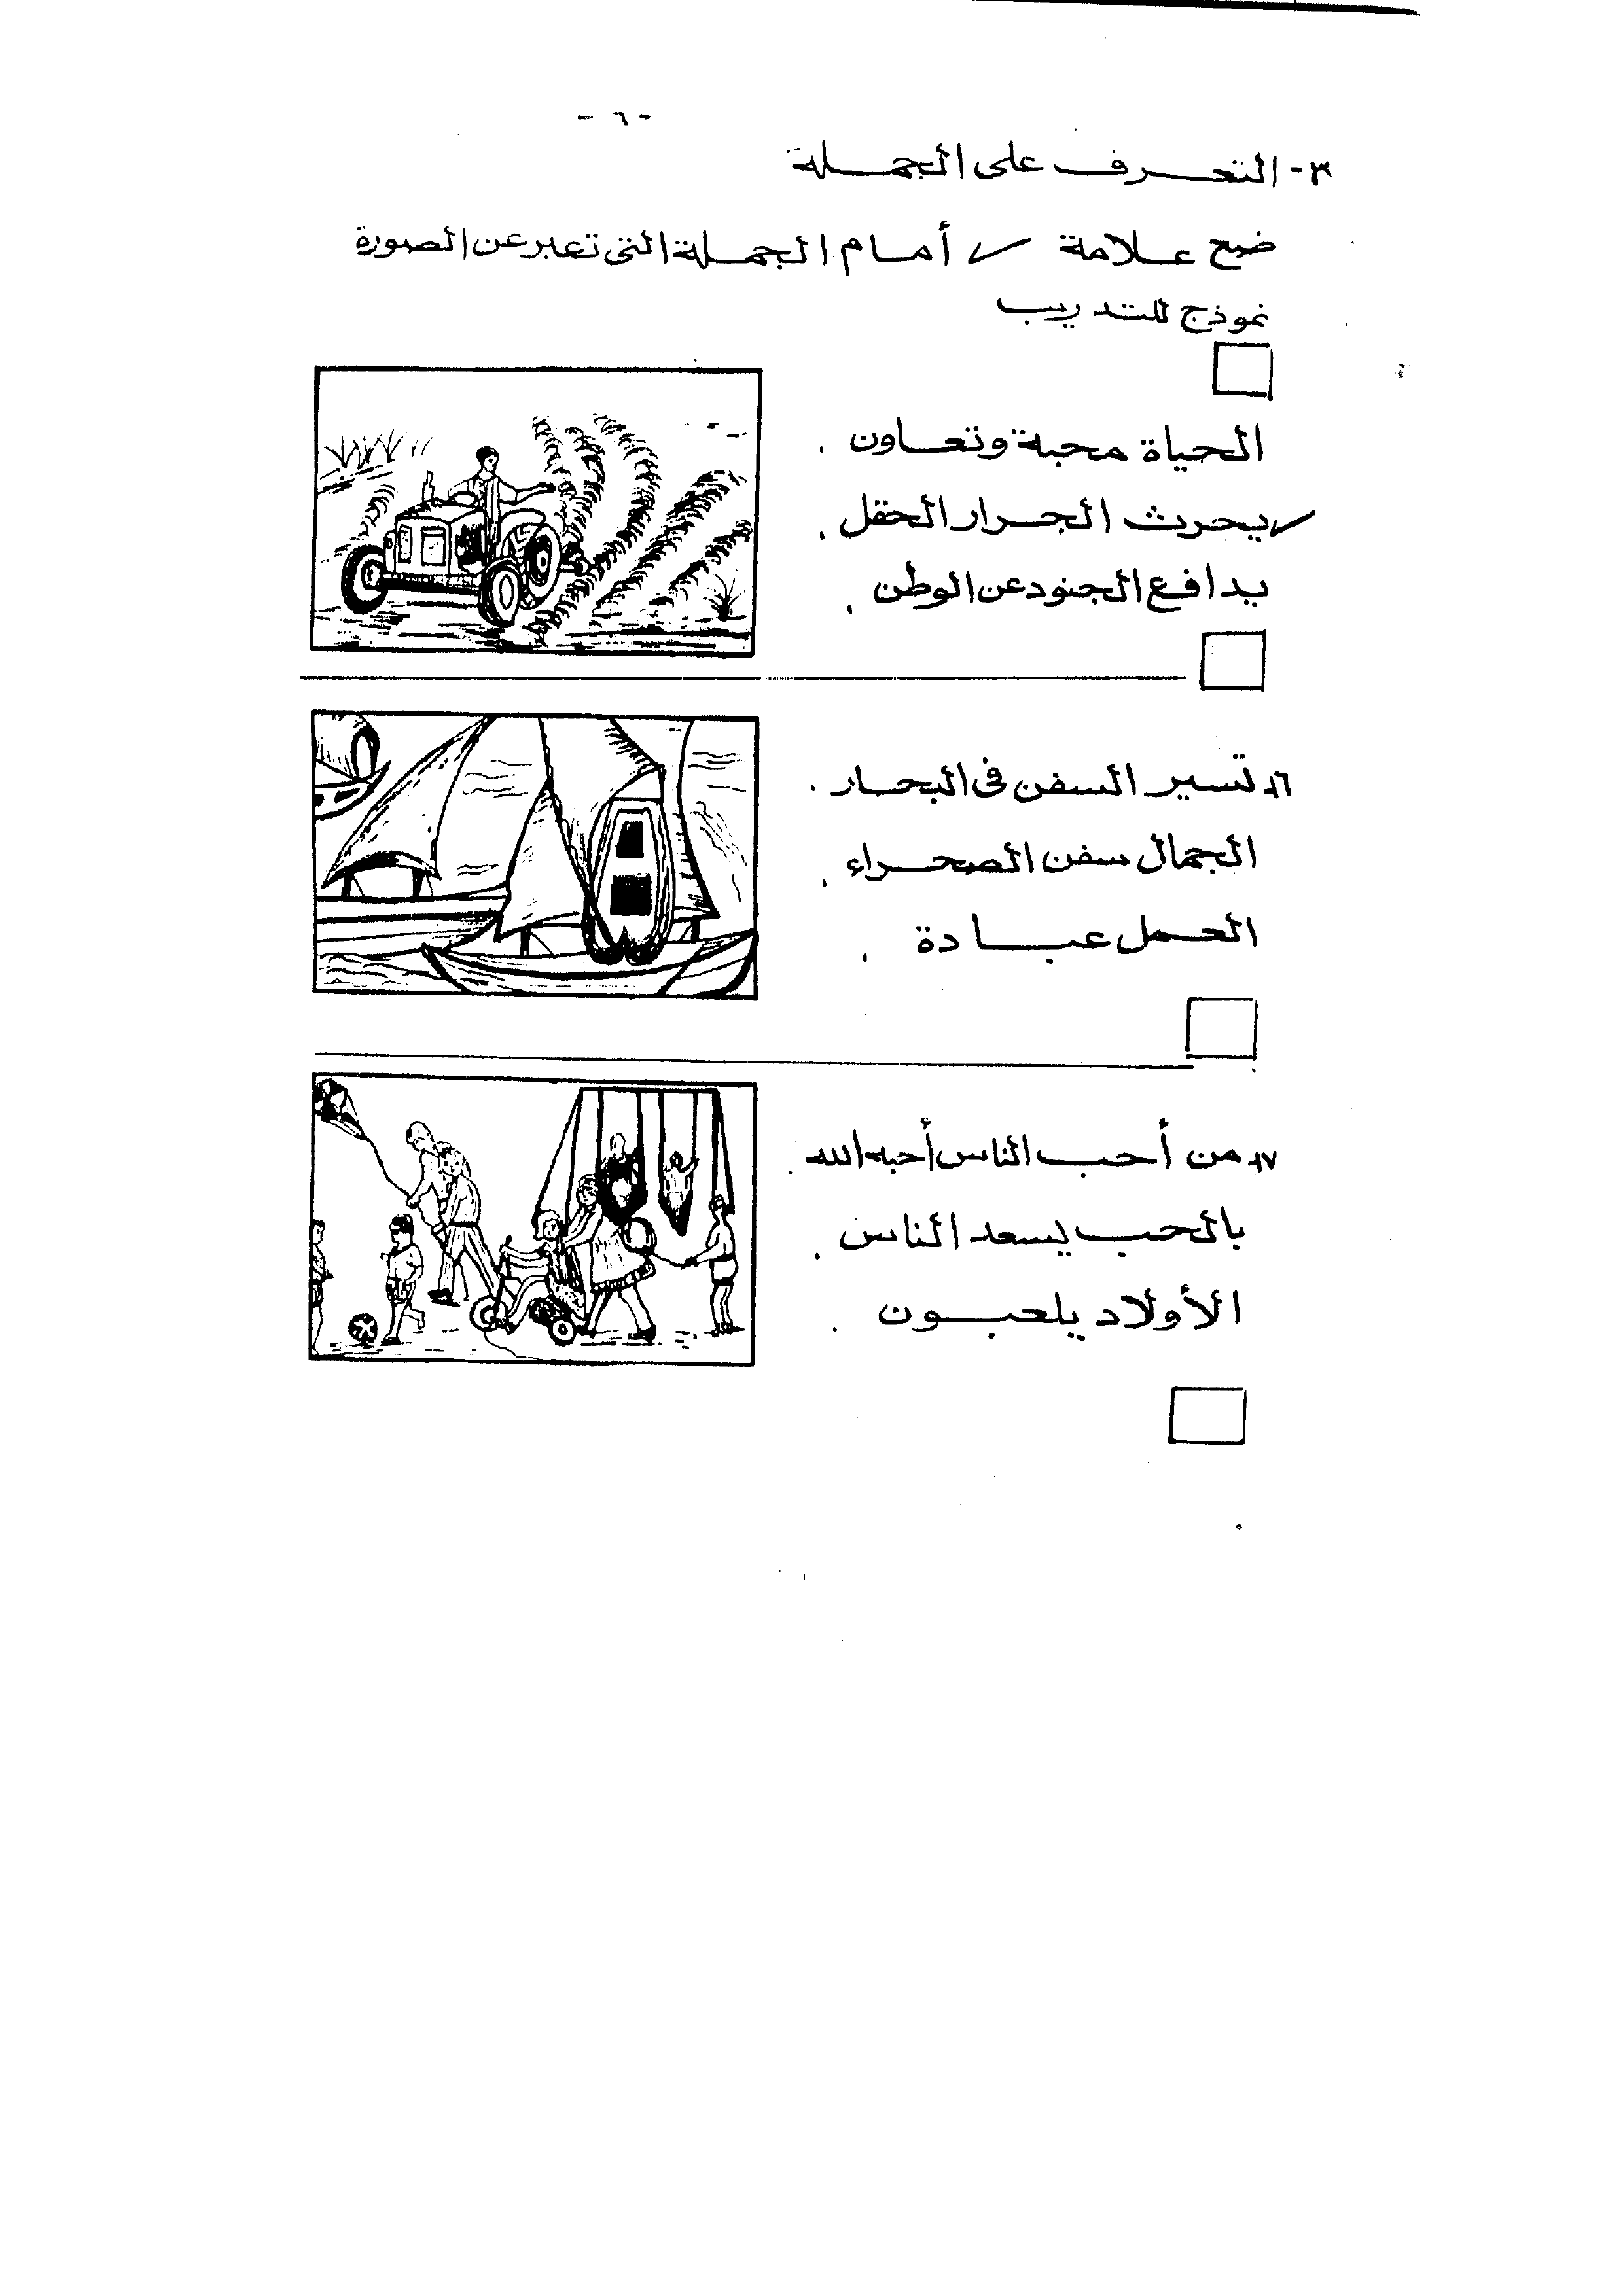 - ٦ -
٣- التعرف على الجملة
ضع علامة ✓ أمام الجملة التى تعبر عن الصورة
نموذج للتدريب
الحياة محبة وتعاون .
✓ يحرث الجرار الحقل .
يدافع الجنود عن الوطن .
١٦ـ تسير السفن فى البحار .
الجمال سفن الصحراء .
العمل عبادة .
١٧ـ من أحب الناس أحبه الله .
بالحب يسعد الناس .
الأولاد يلعبون .